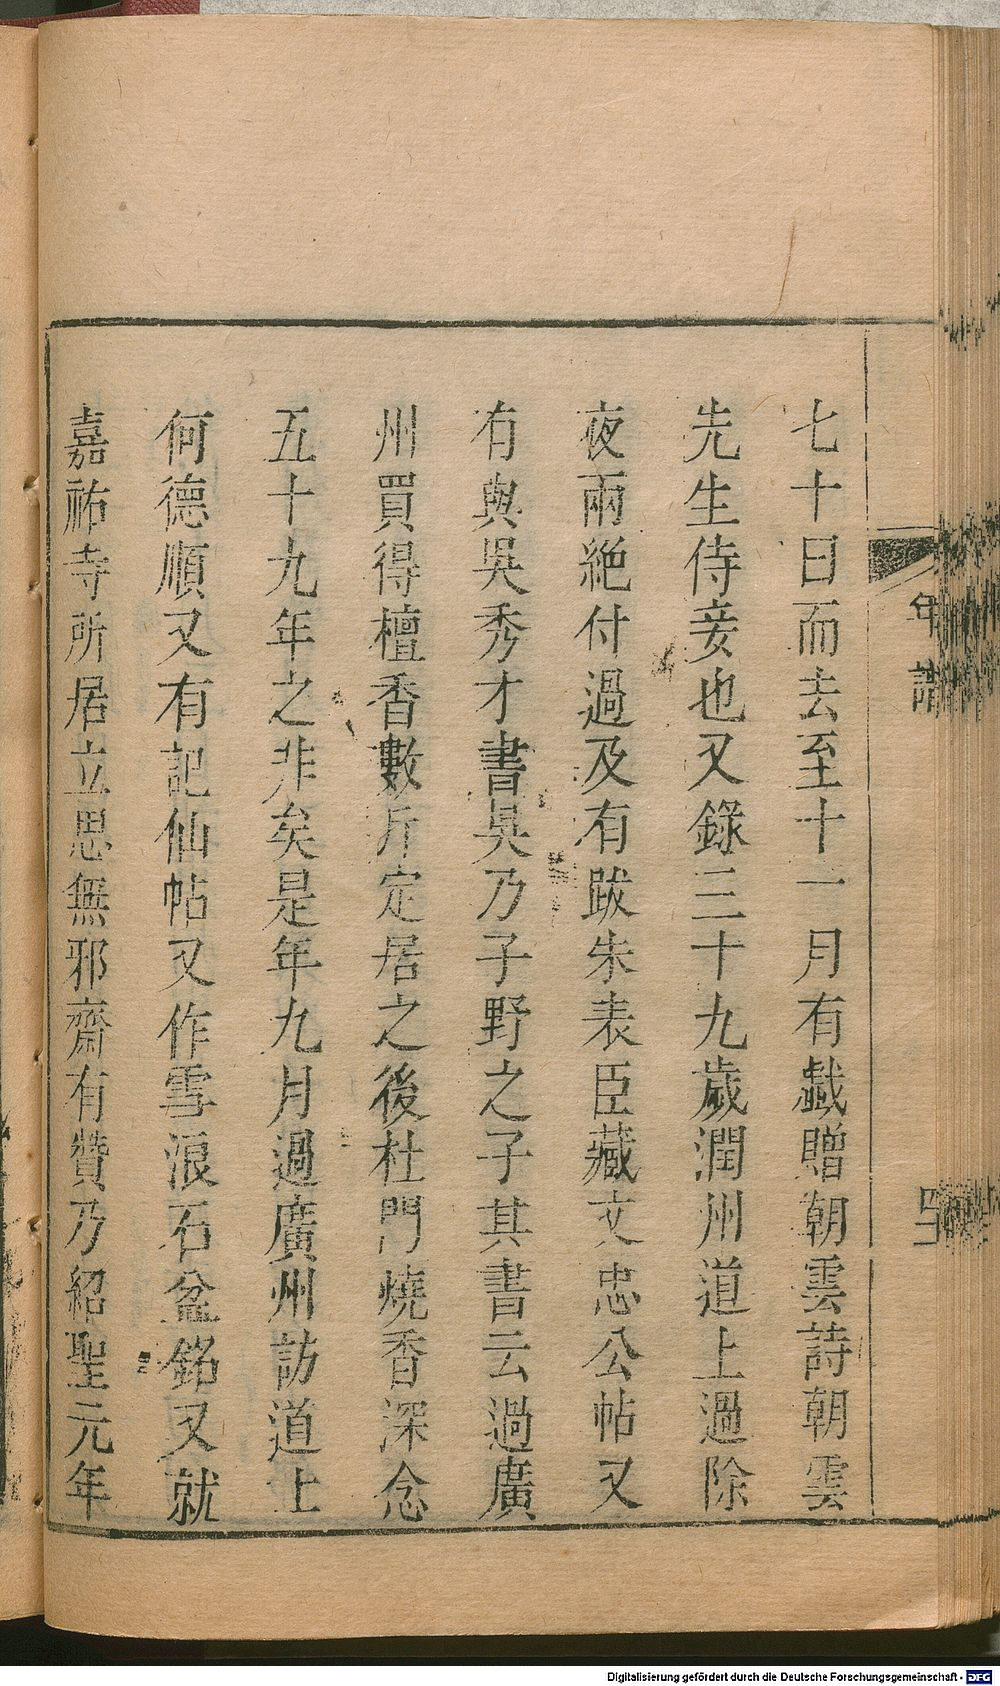 七十日而去至十一月有戲贈朝雲詩朝雲
先生侍妾也又錄三十九歲潤州道上過除
夜兩絶付過及有跋朱表臣藏文忠公帖又
有與吳秀才書吳乃子野之子其書云過廣
州買得檀香數斤定居之後杜門燒香深念
五十九年之非矣是年九月過廣州訪道上
何德順又有記仙帖又作雪浪石盆銘又就
嘉祐寺所居立思無邪齋有贊乃紹聖元年
年譜
Digitalisierung gefördert durch die Deutsche Forschungsgemeinschaft - DFG